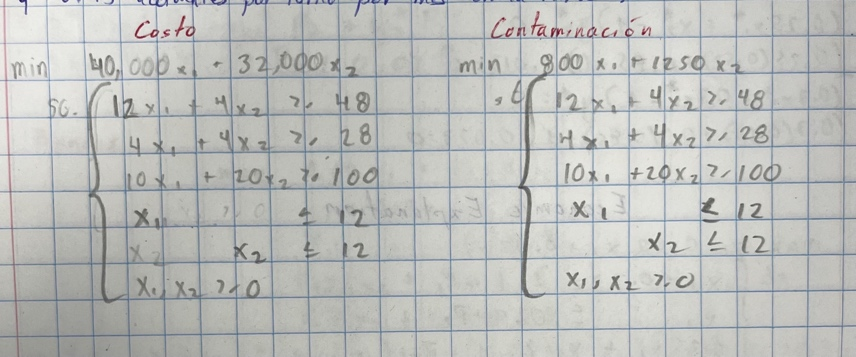 Costo
min 40,000x₁ + 32,000x₂
s.a. 12x₁ + 4x₂ ≥ 48
4x₁ + 4x₂ ≥ 28
10x₁ + 20x₂ ≥ 100
x₁ ≤ 12
x₂ x₂ ≤ 12
x₁, x₂ ≥ 0
Contaminación
min 800x₁ + 1250x₂
12x₁ + 4x₂ ≥ 48
4x₁ + 4x₂ ≥ 28
10x₁ + 20x₂ ≥ 100
x₁ ≤ 12
x₂ ≤ 12
x₁, x₂ ≥ 0